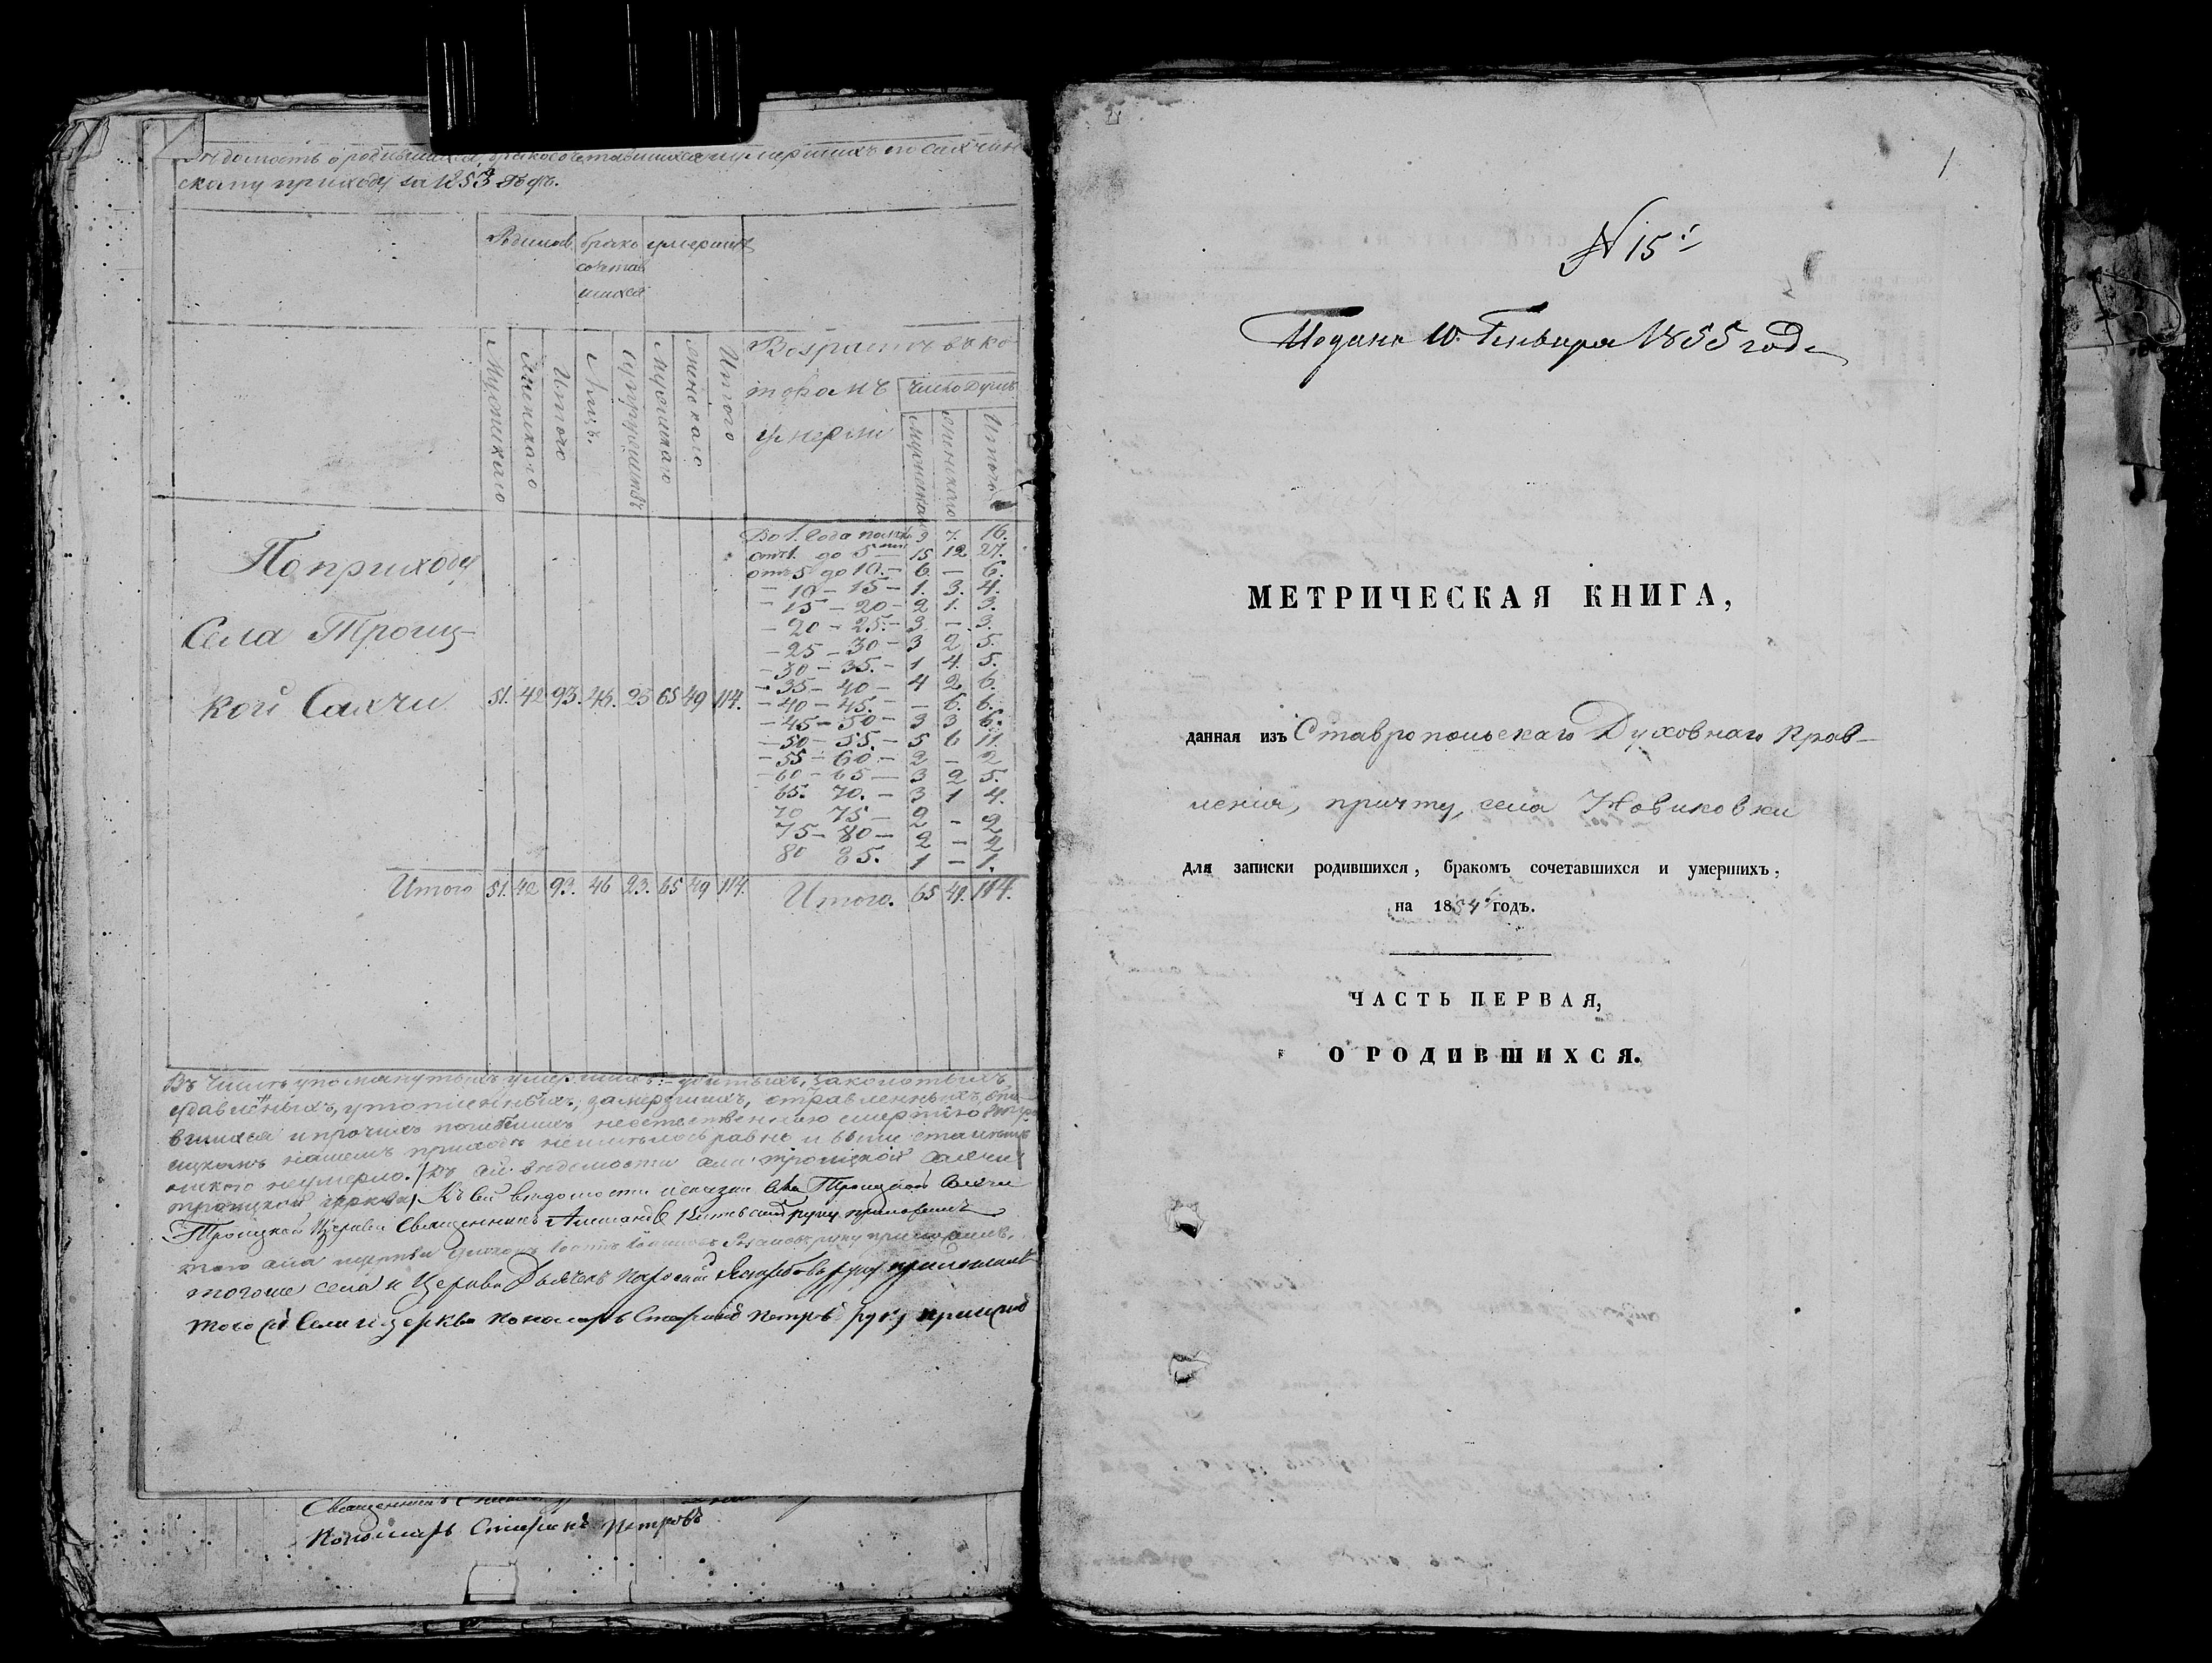 Вѣдомость о родившихся, бракосочетавшихся и умершихъ по Сахчин
скому приходу за 1853 годъ.
Родилось брако умершихъ
сочетав
шихся
Мужескаго Женскаго Итого Лицъ. Супружествъ Мужескаго Женскаго Итого
Возрастъ въ ко
торомъ Число Душъ
умерли Мужескаго Женскаго Итого
По приходу
Села Троиц-
кой Сахчи 51. 42 93. 46. 23 65 49 114.
До 1. года 9 7. 16.
отъ 1. до 5 — 15 12 27.
отъ 5 до 10. — 6. — 6.
— 10 — 15 — 1. 3. 4.
— 15 — 20 — 2 1. 3.
— 20 — 25. — 3. — 3.
— 25 — 30 — 3 2 5.
— 30 — 35. — 1 4. 5.
— 35 — 40 — 4 2 6.
— 40 — 45. — — 6. 6.
— 45 — 50 — 3 3 6.
— 50 — 55. — 5 6 11.
— 55 — 60. — 2 — 2
— 60 — 65 — 3 2 5.
65. 70. — 3 1 4.
70 75 — 2 — 2
75 — 80 — 2 — 2
80 85. 1 — 1.
Итого 51. 42 93. 46 23. 65 49 114. Итого. 65 49. 114.
Въ числѣ упомянутыхъ умершихъ: убитыхъ, заколотыхъ,
удавленныхъ, утопленныхъ, замерзшихъ, отравленныхъ, опи-
вшихся и прочихъ погибшихъ неестественною смертію
нашемъ приходѣ неимѣлось равно и
никого неумерло. Къ сей вѣдомости села Троицкой Сахчи
Троицкой церкви Къ сей вѣдомости села Троицкой Сахчи
Троицкой Церкви Священникъ руку приложилъ
того села церкви руку приложилъ.
тогоже села и Церкви Дьячекъ руку приложилъ
того села и церкви пономарь Стефанъ Петровъ руку
Священникъ
Пономарь Стефанъ Петровъ
1
N 15й
Подана 10. Генваря 1855 года
МЕТРИЧЕСКАЯ КНИГА,
данная изъ Ставропольскаго Духовнаго Прав-
ленія, причту, села Новиковки
для записки родившихся, бракомъ сочетавшихся и умершихъ,
на 1854 годъ.
ЧАСТЬ ПЕРВАЯ,
О РОДИВШИХСЯ.